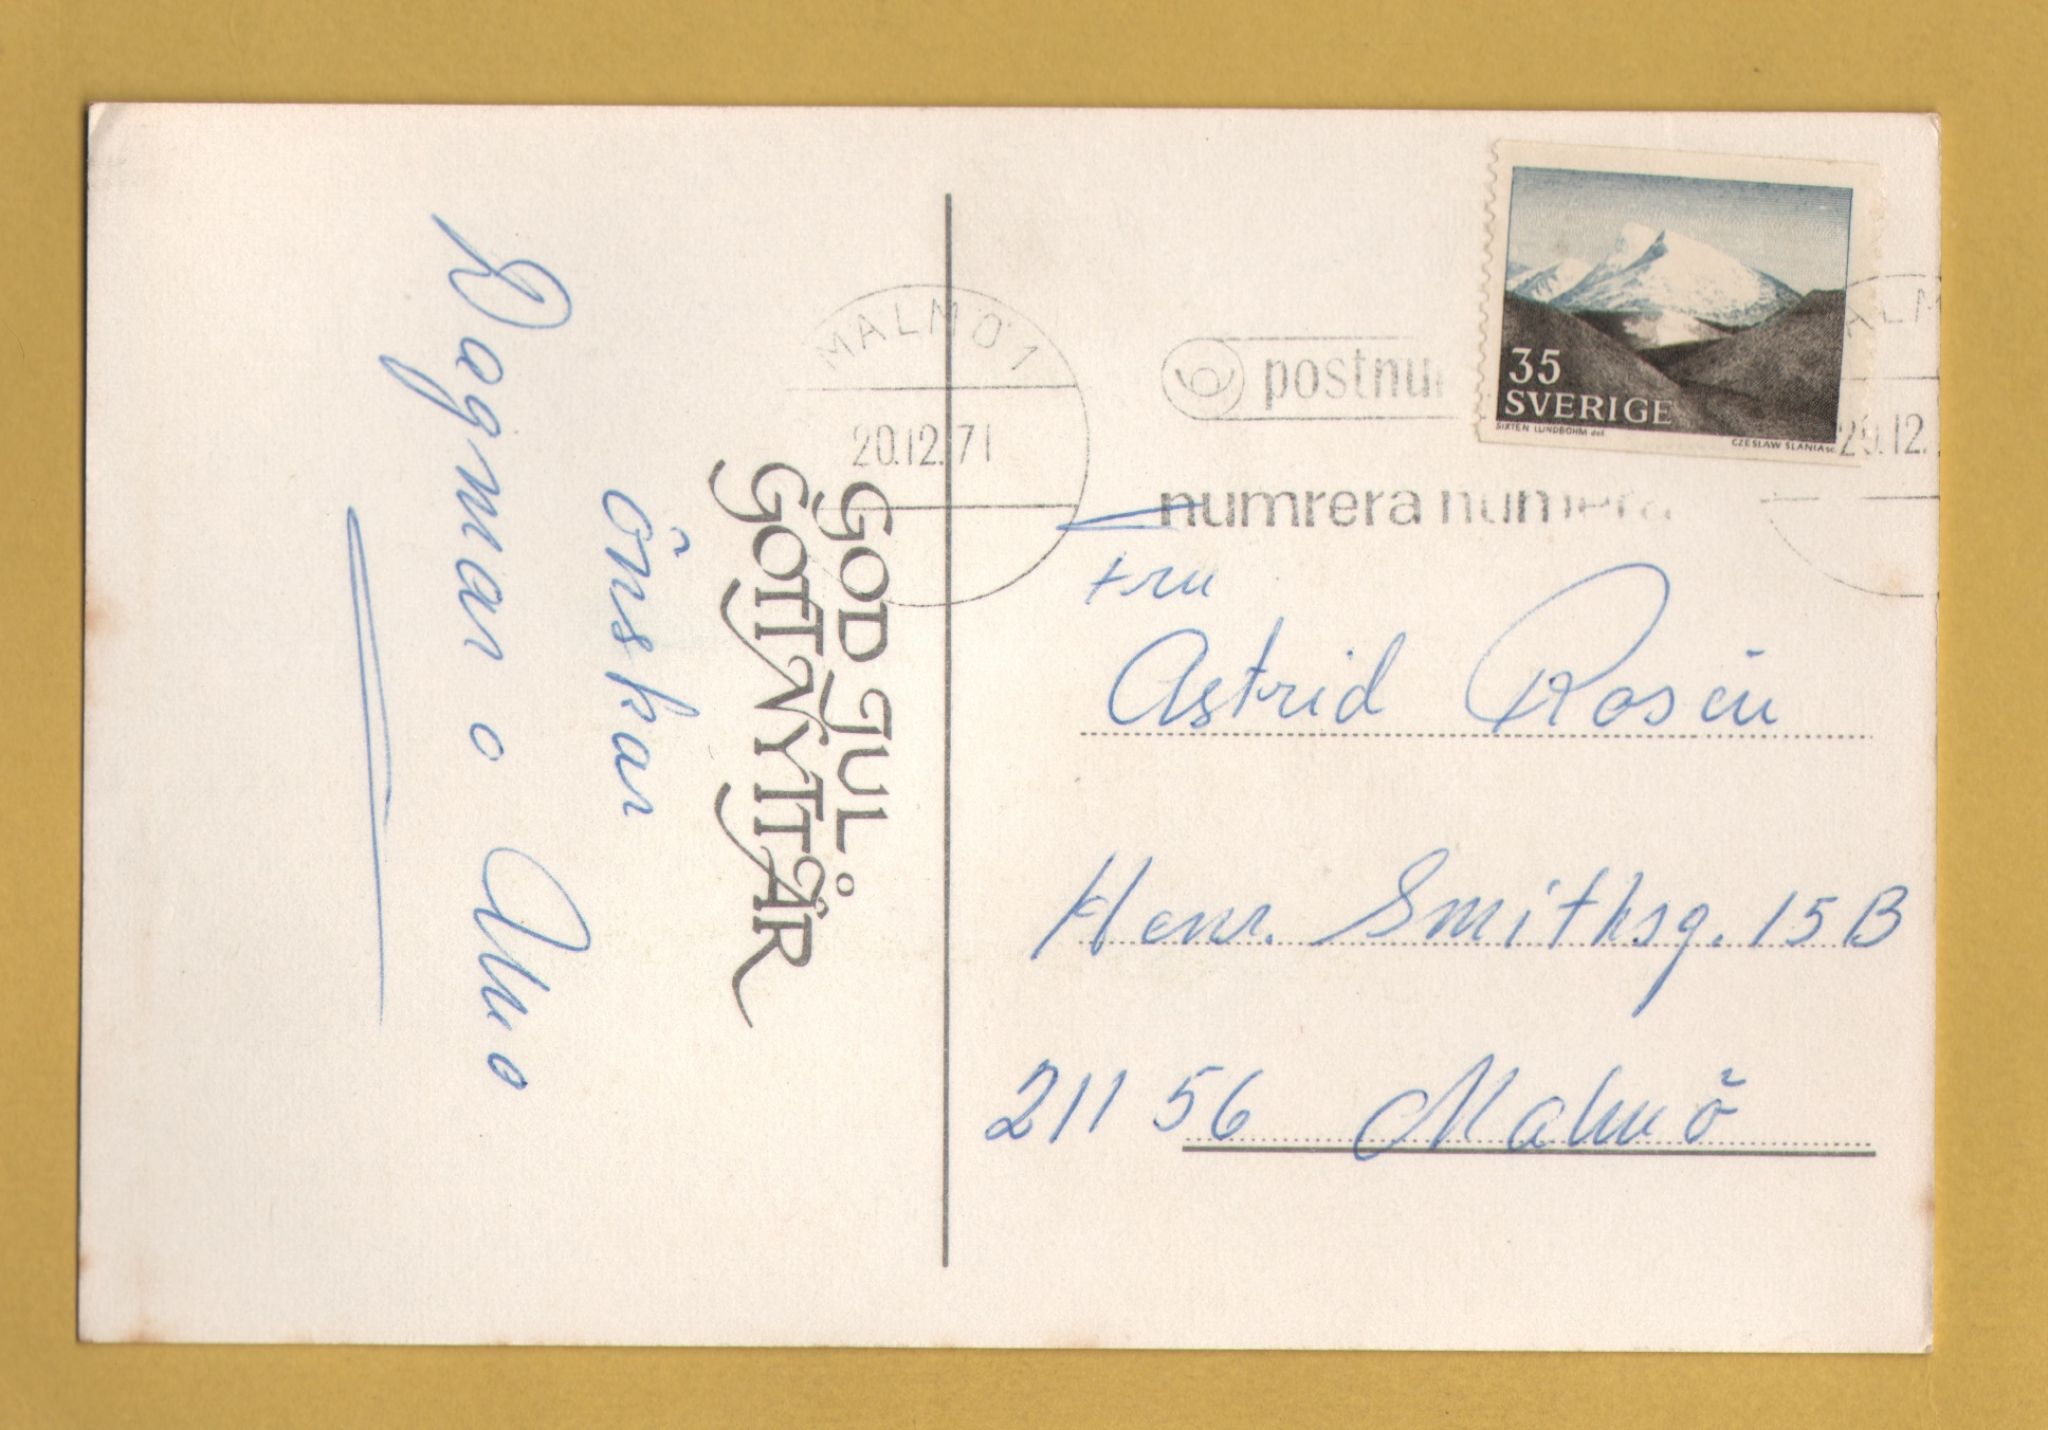 GOD JUL
GOTT NYTT ÅR
önskar
Dagmar o Uno
MALMÖ 1
20.12.71
postnu
numrera numera
35
SVERIGE
SIXTEN LUNDBOHM del.
CZESLAW SLANIA sc.
ALM
20.12.
Fru
Astrid Rosén
Henr. Smithsg. 15 B
211 56 Malmö